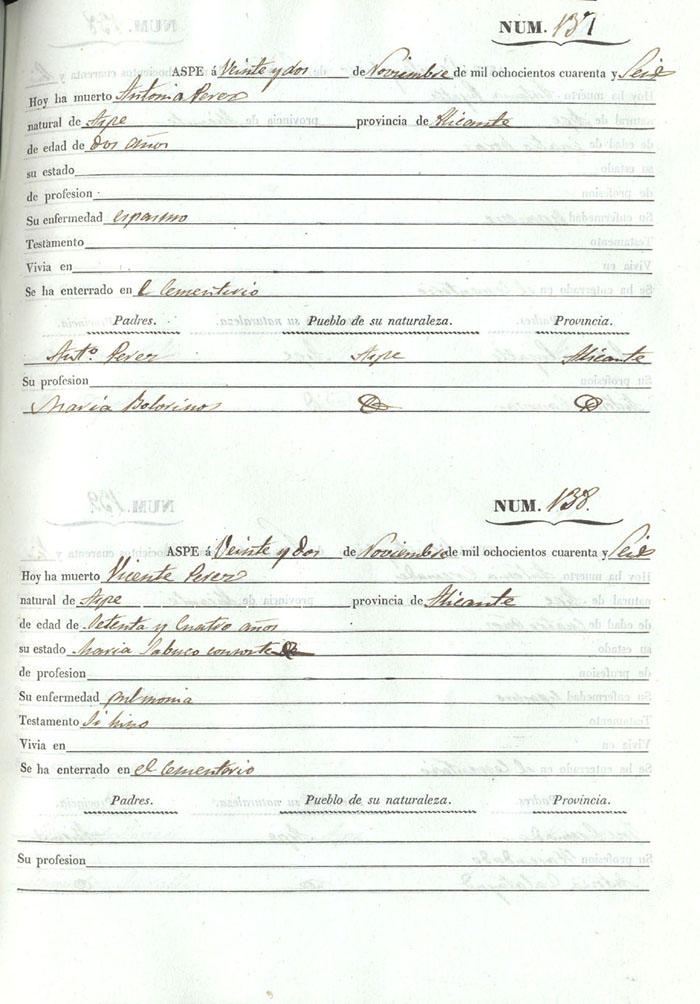 NUM. 137
ASPE á Veinte y dos de Noviembre de mil ochocientos cuarenta y Seis
Hoy ha muerto Antonia Perez
natural de Aspe provincia de Alicante
de edad de dos años
su estado
de profesion
Su enfermedad espasmo
Testamento
Vivia en
Se ha enterrado en el Cementerio
Padres. Pueblo de su naturaleza. Provincia.
Antº Perez Aspe Alicante
Su profesion
Maria Bolorinos
NUM. 138.
ASPE á Veinte y dos de Noviembre de mil ochocientos cuarenta y Seis
Hoy ha muerto Vicente Perez
natural de Aspe provincia de Alicante
de edad de Setenta y Cuatro años
su estado Maria Sabuco consorte
de profesion
Su enfermedad pulmonia
Testamento Si hizo
Vivia en
Se ha enterrado en el Cementerio
Padres. Pueblo de su naturaleza. Provincia.
Su profesion